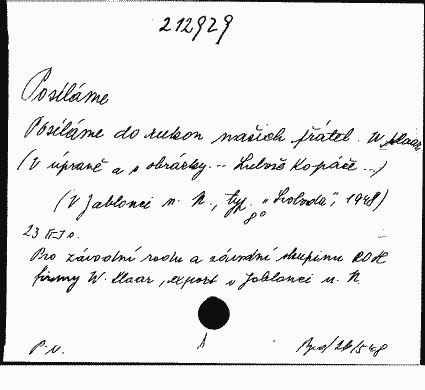 212929
Posíláme
Posíláme do rukou našich přátel. W. Klaar
(V úpravě a s obrázky... Luboše Kopáče...)
(V Jablonci n. N., typ. "Svoboda", 1948)
8°
23
Pro závodní radu a závodní skupinu ROH
firmy W. Klaar, export v Jablonci n. N.
P. v.